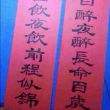 日醉夜醉長命百歲
飲夜飲前程似錦